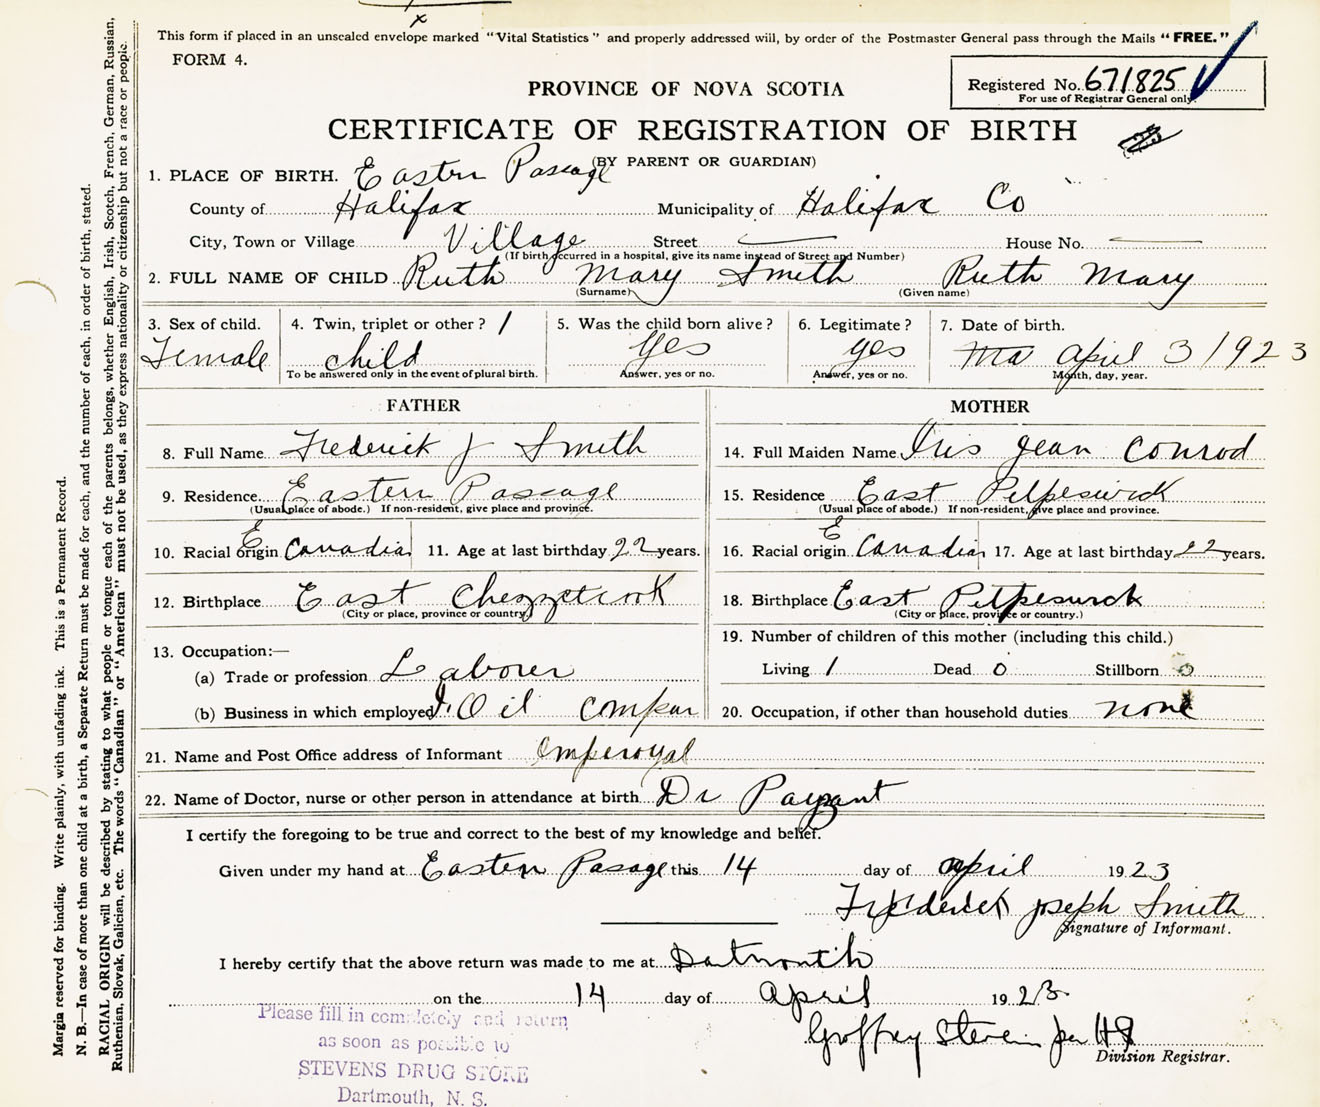 This form if placed in an unsealed envelope marked "Vital Statistics" and properly addressed will, by order of the Postmaster General pass through the Mails "FREE."
FORM 4.
Registered No. 671825
For use of Registrar General only.
PROVINCE OF NOVA SCOTIA
CERTIFICATE OF REGISTRATION OF BIRTH
(BY PARENT OR GUARDIAN)
1. PLACE OF BIRTH. Eastern Passage
County of Halifax Municipality of Halifax Co
City, Town or Village Village Street House No.
(If birth occurred in a hospital, give its name instead of Street and Number)
2. FULL NAME OF CHILD Ruth Mary Smith Ruth Mary
(Surname) (Given name)
3. Sex of child. 4. Twin, triplet or other? 1 5. Was the child born alive? 6. Legitimate? 7. Date of birth.
Female child Yes yes Ma April 3 1923
To be answered only in the event of plural birth. Answer, yes or no. Answer, yes or no. Month, day, year.
FATHER MOTHER
8. Full Name Frederick J Smith 14. Full Maiden Name Iris Jean Conrod
9. Residence Eastern Passage 15. Residence East Petpeswick
(Usual place of abode.) If non-resident, give place and province. (Usual place of abode.) If non-resident, give place and province.
10. Racial origin E Canadian 11. Age at last birthday 22 years. 16. Racial origin E Canadian 17. Age at last birthday 22 years.
12. Birthplace East Chezzetcook 18. Birthplace East Petpeswick
(City or place, province or country) (City or place, province or country.)
13. Occupation:— 19. Number of children of this mother (including this child.)
(a) Trade or profession Laborer Living 1 Dead 0 Stillborn 0
(b) Business in which employed I. Oil Compan 20. Occupation, if other than household duties none
21. Name and Post Office address of Informant Imperoyal
22. Name of Doctor, nurse or other person in attendance at birth Dr Payzant
I certify the foregoing to be true and correct to the best of my knowledge and belief.
Given under my hand at Eastern Pasage this 14 day of april 1923
Frederick Joseph Smith
Signature of Informant.
I hereby certify that the above return was made to me at Datmouth
on the 14 day of April 1923
Geoffrey Stevens per H
Division Registrar.
Please fill in completely and return
as soon as possible to
STEVENS DRUG STORE
Dartmouth, N. S.
Margin reserved for binding. Write plainly, with unfading ink. This is a Permanent Record.
N. B.—In case of more than one child at a birth, a Separate Return must be made for each, and the number of each, in order of birth, stated.
RACIAL ORIGIN will be described by stating to what people or tongue each of the parents belongs, whether English, Irish, Scotch, French, German, Russian,
Ruthenian, Slovak, Galician, etc. The words "Canadian" or "American" must not be used, as they express nationality or citizenship but not a race or people.